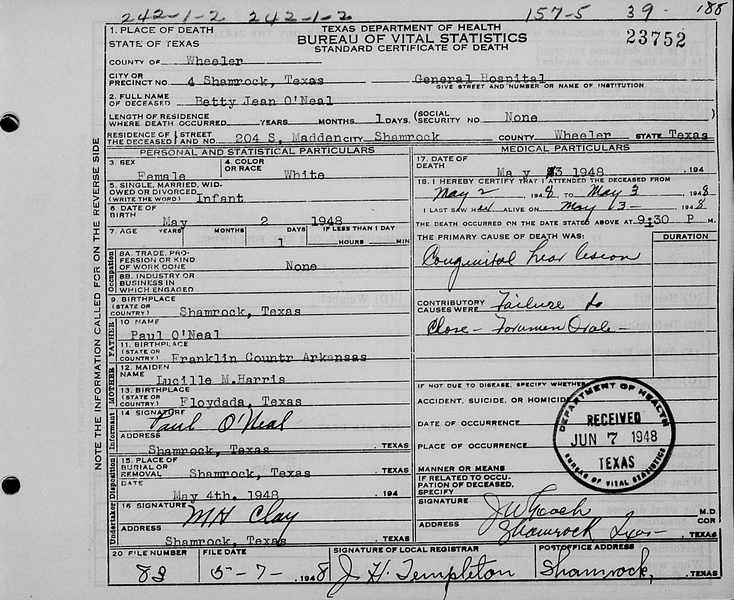 242-1-2 242-1-2 157-5 39 188
1. PLACE OF DEATH
STATE OF TEXAS
TEXAS DEPARTMENT OF HEALTH
BUREAU OF VITAL STATISTICS
STANDARD CERTIFICATE OF DEATH
23752
COUNTY OF Wheeler
CITY OR PRECINCT NO. 4 Shamrock, Texas General Hospital
GIVE STREET AND NUMBER OR NAME OF INSTITUTION
2. FULL NAME OF DECEASED Betty Jean O'Neal
LENGTH OF RESIDENCE WHERE DEATH OCCURRED YEARS MONTHS 1 DAYS (SOCIAL SECURITY NO. None
RESIDENCE OF THE DECEASED STREET AND NO. 204 S. Madden CITY Shamrock COUNTY Wheeler STATE Texas
PERSONAL AND STATISTICAL PARTICULARS
3. SEX Female
4. COLOR OR RACE White
5. SINGLE, MARRIED, WIDOWED OR DIVORCED (WRITE THE WORD) Infant
6. DATE OF BIRTH May 2 1948
7. AGE YEARS MONTHS DAYS 1 IF LESS THAN 1 DAY HOURS MIN
8A. TRADE, PROFESSION OR KIND OF WORK DONE None
8B. INDUSTRY OR BUSINESS IN WHICH ENGAGED
9. BIRTHPLACE (STATE OR COUNTRY) Shamrock, Texas
10 NAME
Paul O'Neal
11. BIRTHPLACE (STATE OR COUNTRY) Franklin Countr Arkansas
12. MAIDEN NAME Lucille M.Harris
13. BIRTHPLACE (STATE OR COUNTRY) Floydada, Texas
14 SIGNATURE Paul O'Neal
ADDRESS
Shamrock, Texas , TEXAS
15. PLACE OF BURIAL OR REMOVAL Shamrock, Texas , TEXAS
DATE
May 4th. 1948 194
16 SIGNATURE M H Clay
ADDRESS
Shamrock, Texas , TEXAS
Occupation
FATHER
MOTHER
Informant
Disposition
Undertaker
NOTE THE INFORMATION CALLED FOR ON THE REVERSE SIDE
MEDICAL PARTICULARS
17. DATE OF DEATH May 3 1948 , 194
18. I HEREBY CERTIFY THAT I ATTENDED THE DECEASED FROM
May 2 , 1948 TO May 3 1948
I LAST SAW her ALIVE ON May 3 - 1948
THE DEATH OCCURRED ON THE DATE STATED ABOVE AT 9:30 P M.
THE PRIMARY CAUSE OF DEATH WAS: DURATION
Congenital lesion
CONTRIBUTORY CAUSES WERE Failure to
Close - Foramen Ovale -
IF NOT DUE TO DISEASE, SPECIFY WHETHER
ACCIDENT, SUICIDE, OR HOMICIDE
DATE OF OCCURRENCE
PLACE OF OCCURRENCE
MANNER OR MEANS
IF RELATED TO OCCUPATION OF DECEASED, SPECIFY
DEPARTMENT OF HEALTH
RECEIVED
JUN 7 1948
TEXAS
BUREAU OF VITAL STATISTICS
SIGNATURE M.D.
COR
ADDRESS Shamrock Texas , TEXAS
20 FILE NUMBER
83
FILE DATE
5-7- 1948
SIGNATURE OF LOCAL REGISTRAR
J H. Templeton
POSTOFFICE ADDRESS
Shamrock, , TEXAS